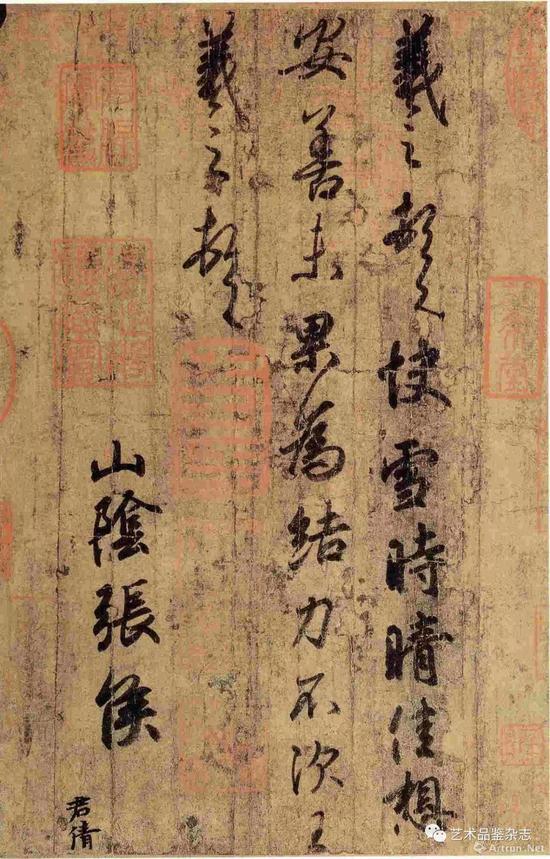 羲之頓首快雪時晴佳想
安善未果為結力不次王
羲之頓首
山陰張侯
君倩
艺术品鉴杂志
Artron.Net